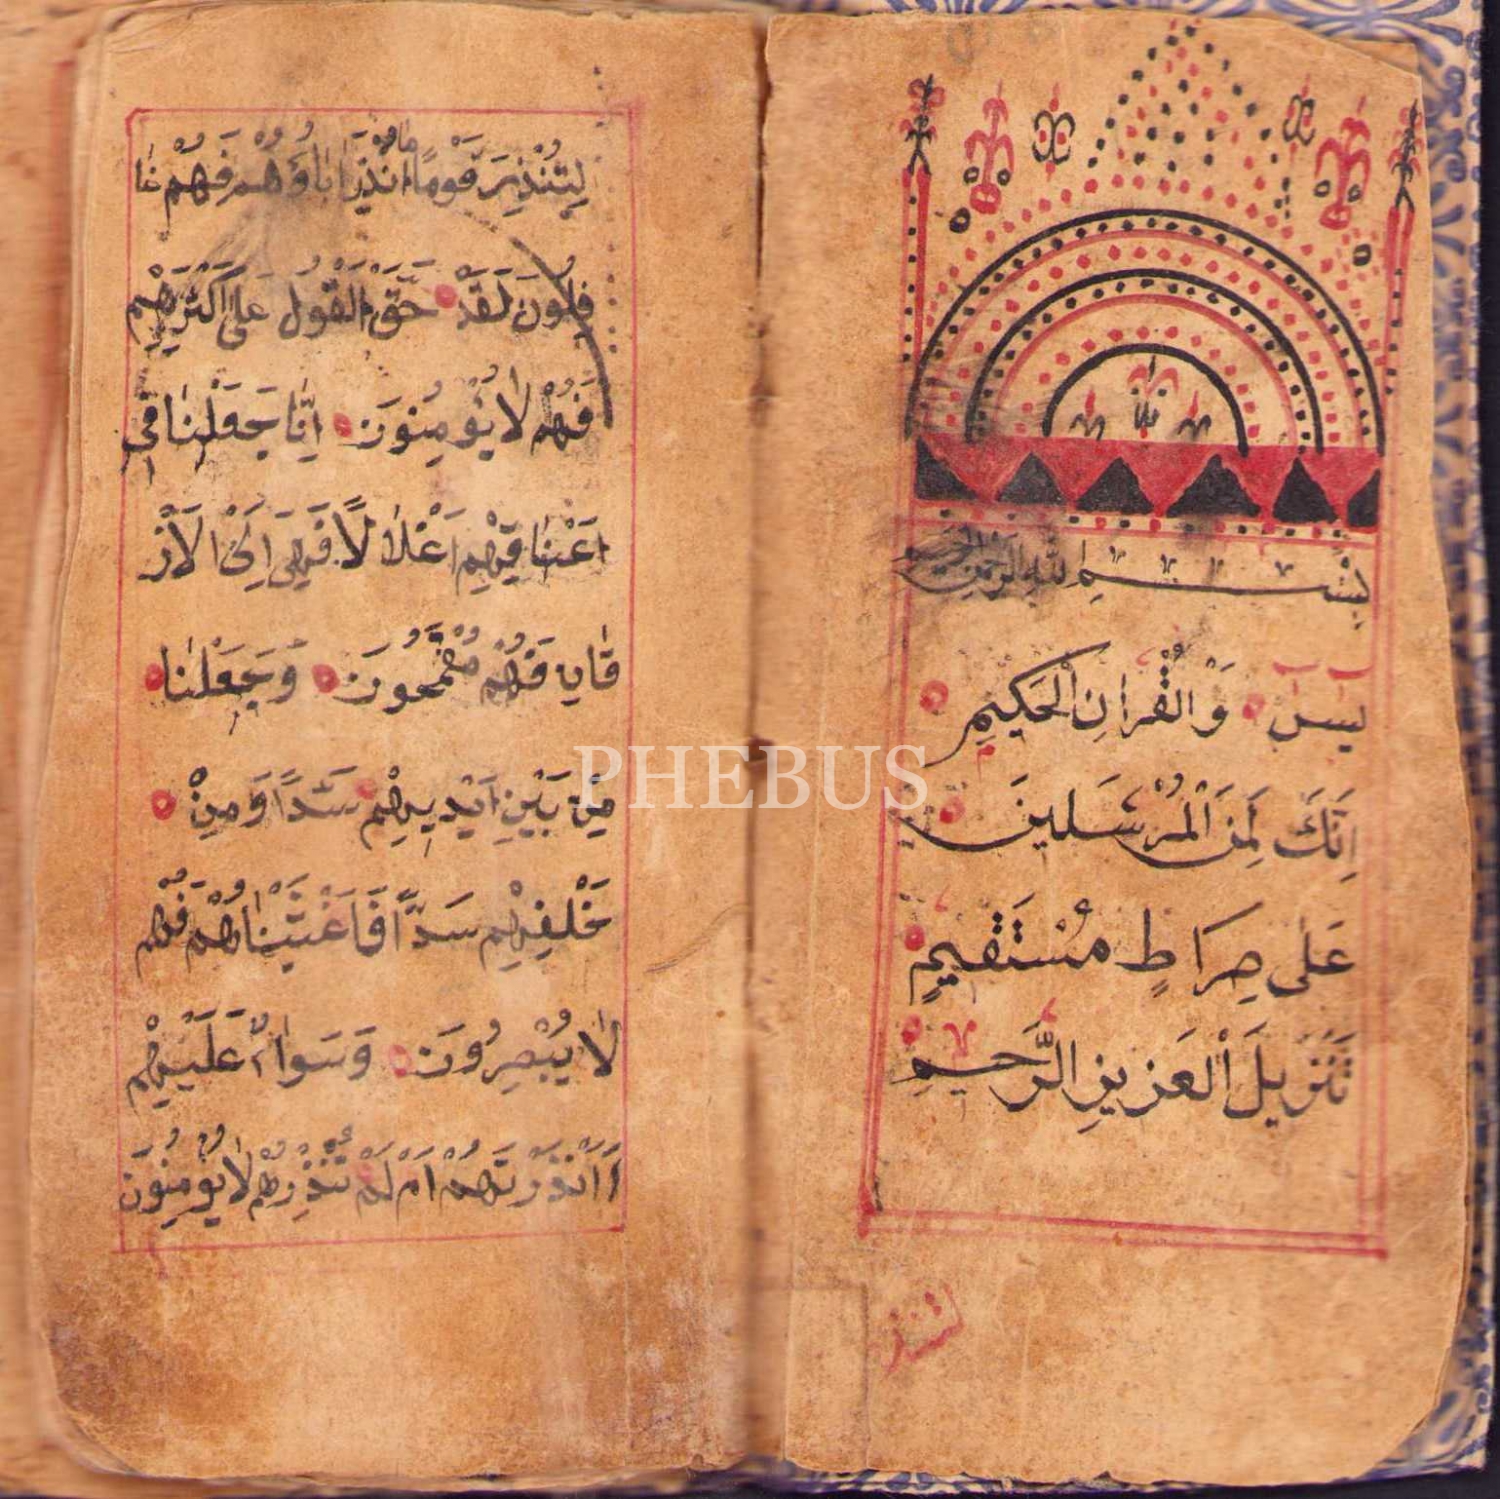 بِسْــــــمِ اللهِ الرَّحْمٰنِ الرَّحِيمِ
يٓسٓ وَالْقُرْاٰنِ الْحَكِيمِ
اِنَّكَ لَمِنَ الْمُرْسَلِينَ
عَلٰى صِرَاطٍ مُسْتَقِيمٍ
تَنْزِيلَ الْعَزِيزِ الرَّحِيمِ
لتنذر
لِتُنْذِرَ قَوْمًا مَا اُنْذِرَ اٰبَاؤُهُمْ فَهُمْ غَا
فِلُونَ لَقَدْ حَقَّ الْقَوْلُ عَلٰى اَكْثَرِهِمْ
فَهُمْ لَا يُؤْمِنُونَ اِنَّا جَعَلْنَا فِى
اَعْنَاقِهِمْ اَغْلَالًا فَهِىَ اِلَى الْاَذْ
قَانِ فَهُمْ مُقْمَحُونَ وَجَعَلْنَا
مِنْ بَيْنِ اَيْدِيهِمْ سَدًّا وَمِنْ
خَلْفِهِمْ سَدًّا فَاَغْشَيْنَاهُمْ فَهُمْ
لَا يُبْصِرُونَ وَسَوَاءٌ عَلَيْهِمْ
ءَاَنْذَرْتَهُمْ اَمْ لَمْ تُنْذِرْهُمْ لَا يُؤْمِنُونَ
PHEBUS